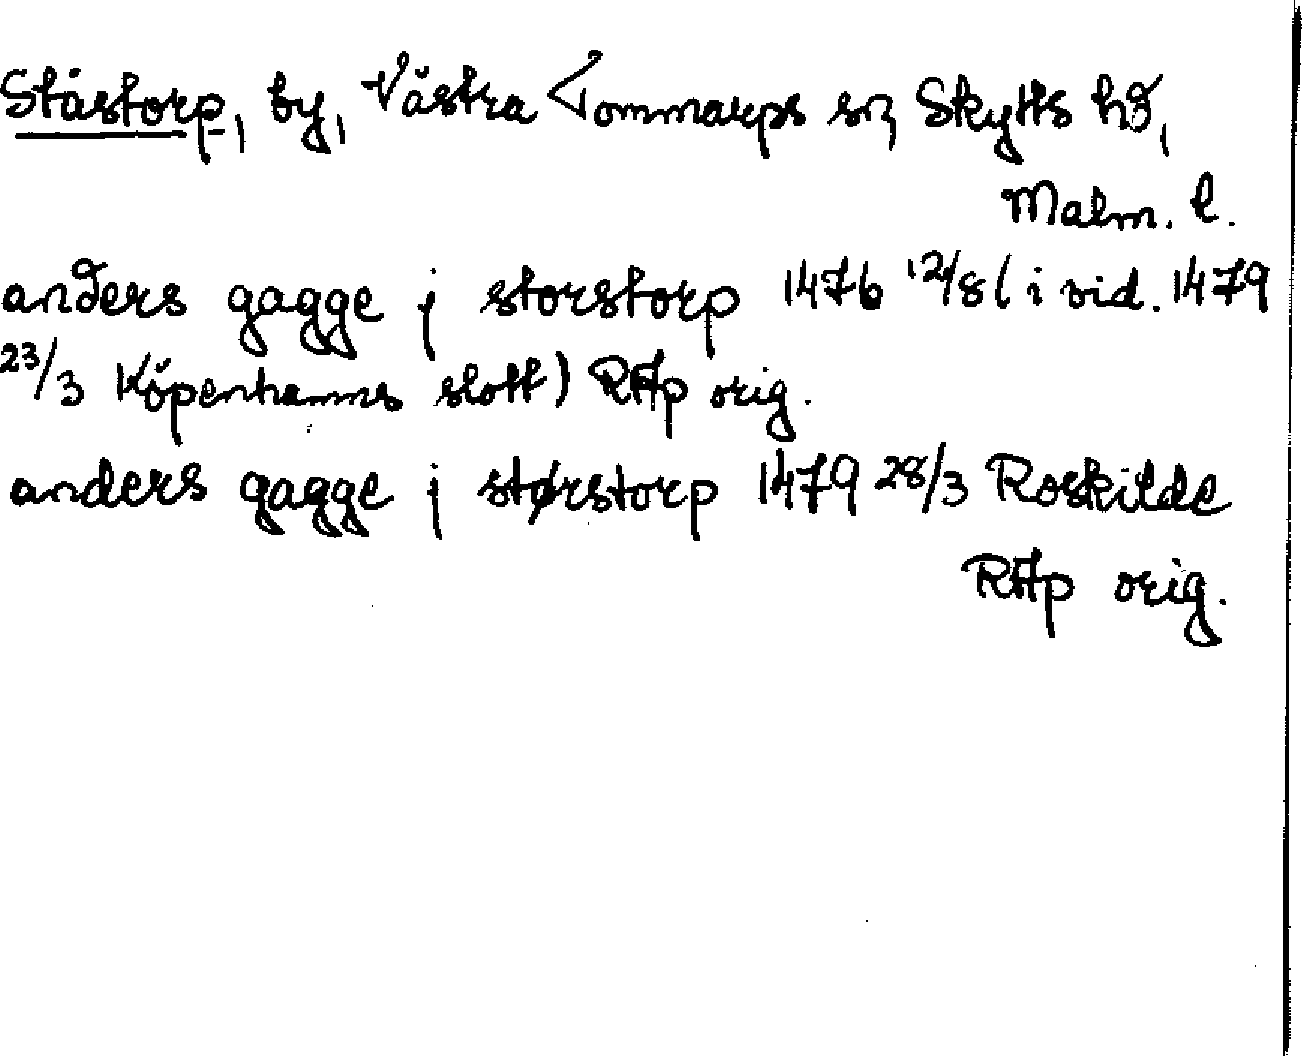 Ståstorp, by, Västra Tommarps sn, Skytts hd,
Malm. l.
anders gagge j storstorp 1476 12/8 (i vid. 1479
23/3 Köpenhamns slott) RAp orig.
anders gagge j størstorp 1479 28/3 Roskilde
RAp orig.